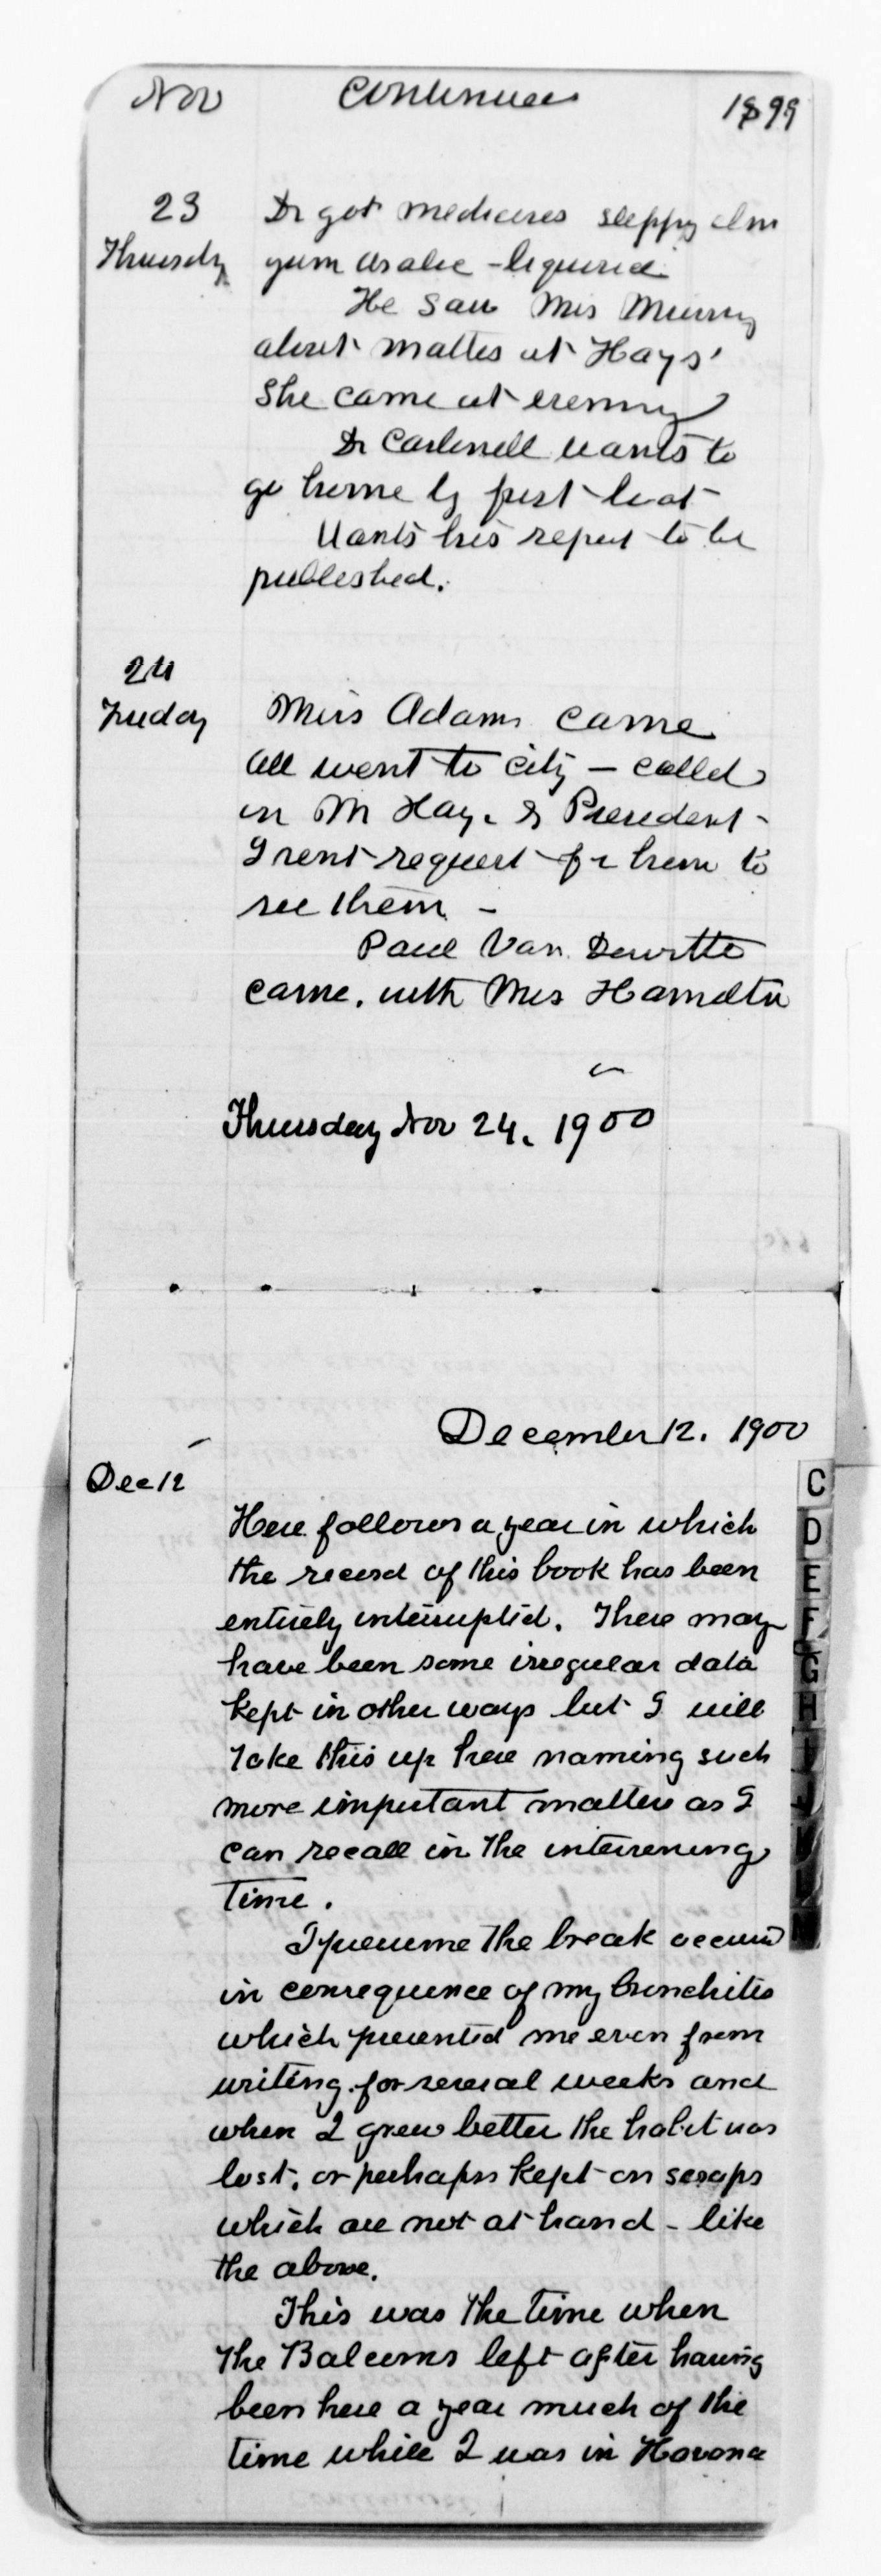 Nov Continued 1899
23 Dr got medicines slippy elm
Thursdy gum arabic - liquired
He saw Mrs Murray
about matters at Hays'
She came at evening
Dr Cardwell wants to
go home by first boat
Wants his report to be
published.
24
Friday Miss Adams came
all went to city - called
on Mr Hay. & President -
I sent request for him to
see them -
Paul Van Dewitte
came. with Mrs Hamilton
Thursday Nov 24. 1900
December 12. 1900
Dec 12
Here follows a year in which
the record of this book has been
entirely interrupted. There may
have been some irregular data
kept in other ways but I will
take this up here naming such
more important matters as I
can recall in the intervening
time.
I presume the break occurred
in consequence of my bronchitis
which prevented me even from
writing for several weeks and
when I grew better the habit was
lost. or perhaps kept on scraps
which are not at hand - like
the above.
This was the time when
the Balcoms left after having
been here a year much of the
time while I was in Havana
C
D
E
F
G
H